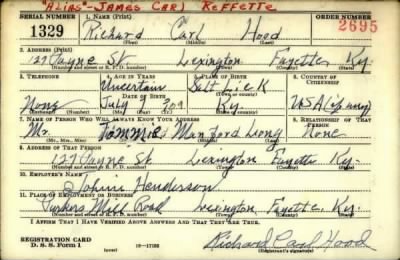 "Alias"-James Carl Reffette
SERIAL NUMBER 1. NAME (Print) ORDER NUMBER
1329 Richard Carl Hood 2695
(First) (Middle) (Last)
2. ADDRESS (Print)
127 Payne St. Lexington Fayette Ky.
(Number and street or R. F. D. number) (Town) (County) (State)
3. TELEPHONE 4. AGE IN YEARS 5. PLACE OF BIRTH 6. COUNTRY OF CITIZENSHIP
Uncertain Salt Lick
DATE OF BIRTH (Town or county)
None July Ky. U.S.A.
7. NAME OF PERSON WHO WILL ALWAYS KNOW YOUR ADDRESS 8. RELATIONSHIP OF THAT PERSON
Mr. Tommie Manford Long None
(Mr., Mrs., Miss) (First) (Middle) (Last)
9. ADDRESS OF THAT PERSON
127 Payne St. Lexington Fayette Ky.
(Number and street or R. F. D. number) (Town) (County) (State)
10. EMPLOYER'S NAME
Henderson
11. PLACE OF EMPLOYMENT OR BUSINESS
Parkers Mill Road Lexington, Fayette, Ky.
(Number and street or R. F. D. number) (Town) (County) (State)
I AFFIRM THAT I HAVE VERIFIED ABOVE ANSWERS AND THAT THEY ARE TRUE.
REGISTRATION CARD
D. S. S. Form 1 (over) Richard Carl Hood
(Registrant's signature)